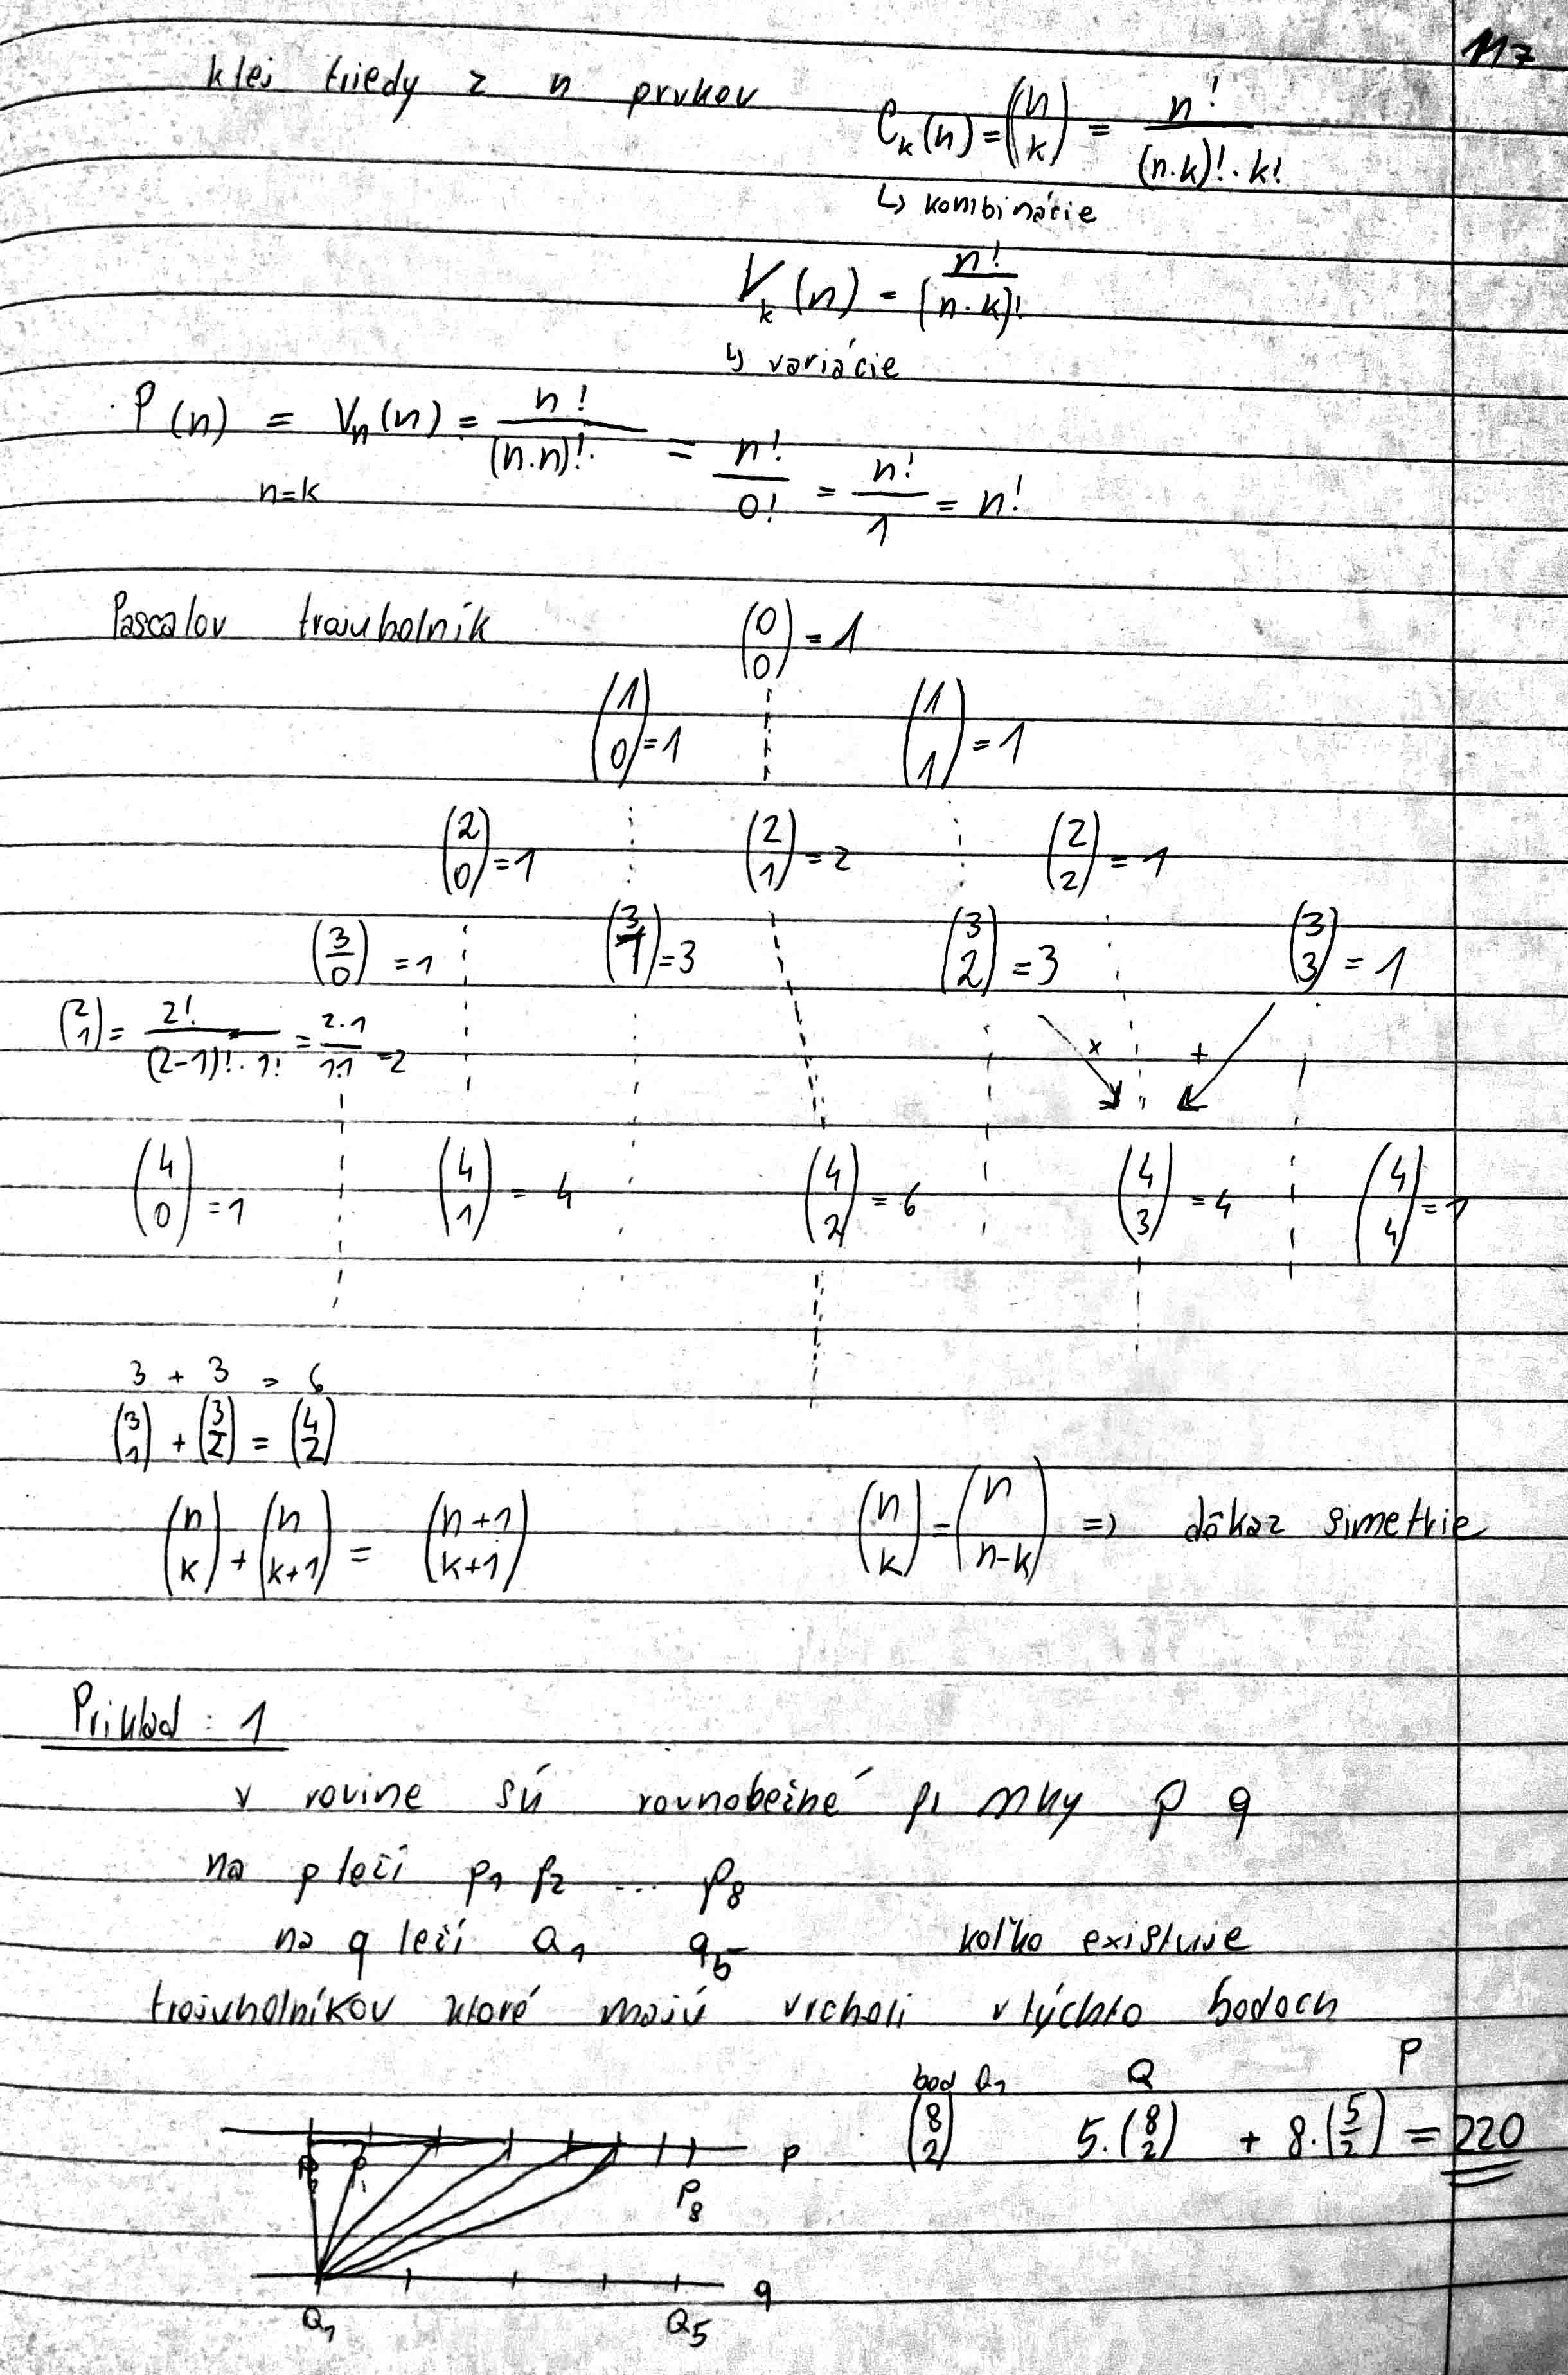 117
k tej triedy z n prvkov C_k(n) = (n k) = n! / (n-k)! . k!
↳ kombinácie
V_k(n) = n! / (n-k)!
↳ variácie
P(n) = V_n(n) = n! / (n-n)! = n! / 0! = n! / 1 = n!
n=k
Pascalov trojuholník (0 0) = 1
(1 0) = 1 (1 1) = 1
(2 0) = 1 (2 1) = 2 (2 2) = 1
(3 0) = 1 (3 1) = 3 (3 2) = 3 (3 3) = 1
(2 1) = 2! / (2-1)! . 1! = 2.1 / 1.1 = 2 x +
(4 0) = 1 (4 1) = 4 (4 2) = 6 (4 3) = 4 (4 4) = 1
3 + 3 = 6
(3 1) + (3 2) = (4 2)
(n k) + (n k+1) = (n+1 k+1) (n k) = (n n-k) => dôkaz simetrie
Priklad : 1
v rovine sú rovnobežné pr mky p q
na p leží p1 p2 ... p8
na q leží Q1 q5 koľko existuje
trojuholníkov ktoré majú vrcholi v týchto bodoch
bod Q1 Q P
(8 2) 5.(8 2) + 8.(5 2) = 220
p
P8
q
Q1 Q5